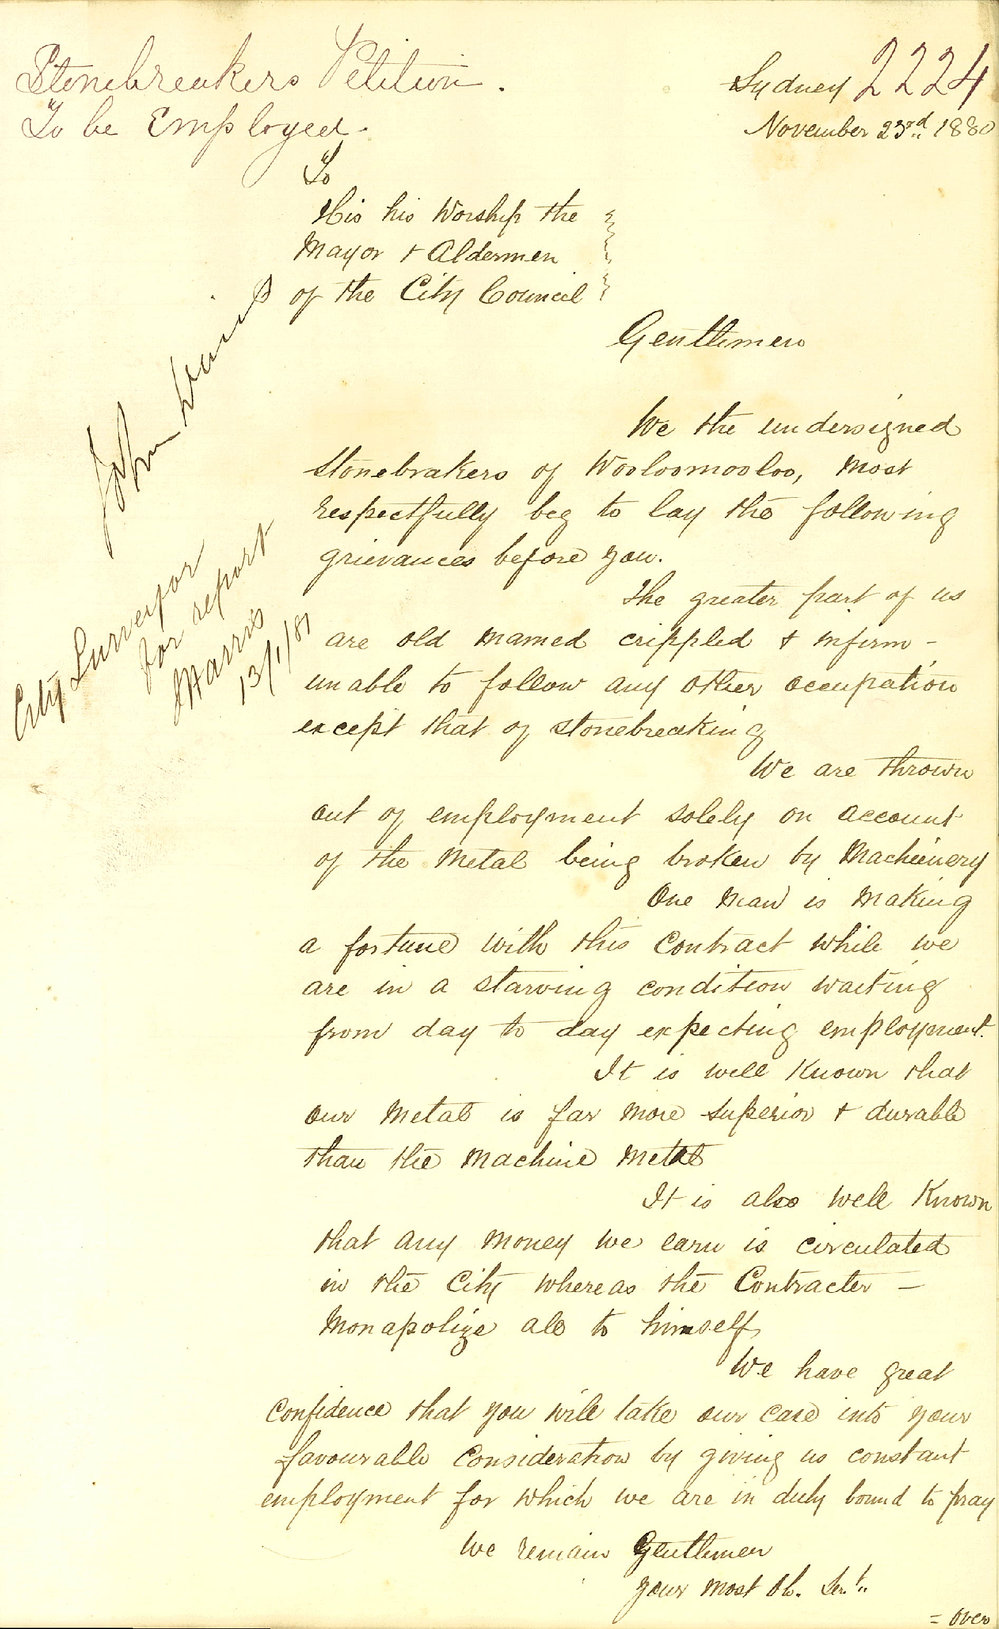 Stonebreakers Petition.
To be Employed.
2224
Sydney
November 23rd 1880
To
His his Worship the
Mayor & Aldermen
of the City Council
Gentlemen
We the undersigned
stonebrakers of Wooloomooloo, most
respectfully beg to lay the following
grievances before you.
The greater part of us
are old mamed crippled & infirm -
unable to follow any other occupation
except that of stonebreaking
We are thrown
out of employment solely on account
of the Metal being broken by Machinery
One man is making
a fortune with this Contract while we
are in a starving condition waiting
from day to day expecting employment.
It is well Known that
our Metal is far more superior & durable
than the Machine Metal
It is also well Known
that any money we earn is circulated
in the City whereas the Contracter -
Monapolize all to himself
We have great
confidence that you will take our case into your
favourable Consideration by giving us constant
employment for which we are in duty bound to pray
We remain Gentlemen
your most Ob. Sert.
= over
John
City Surveyor
for report
Harris
13/1/81